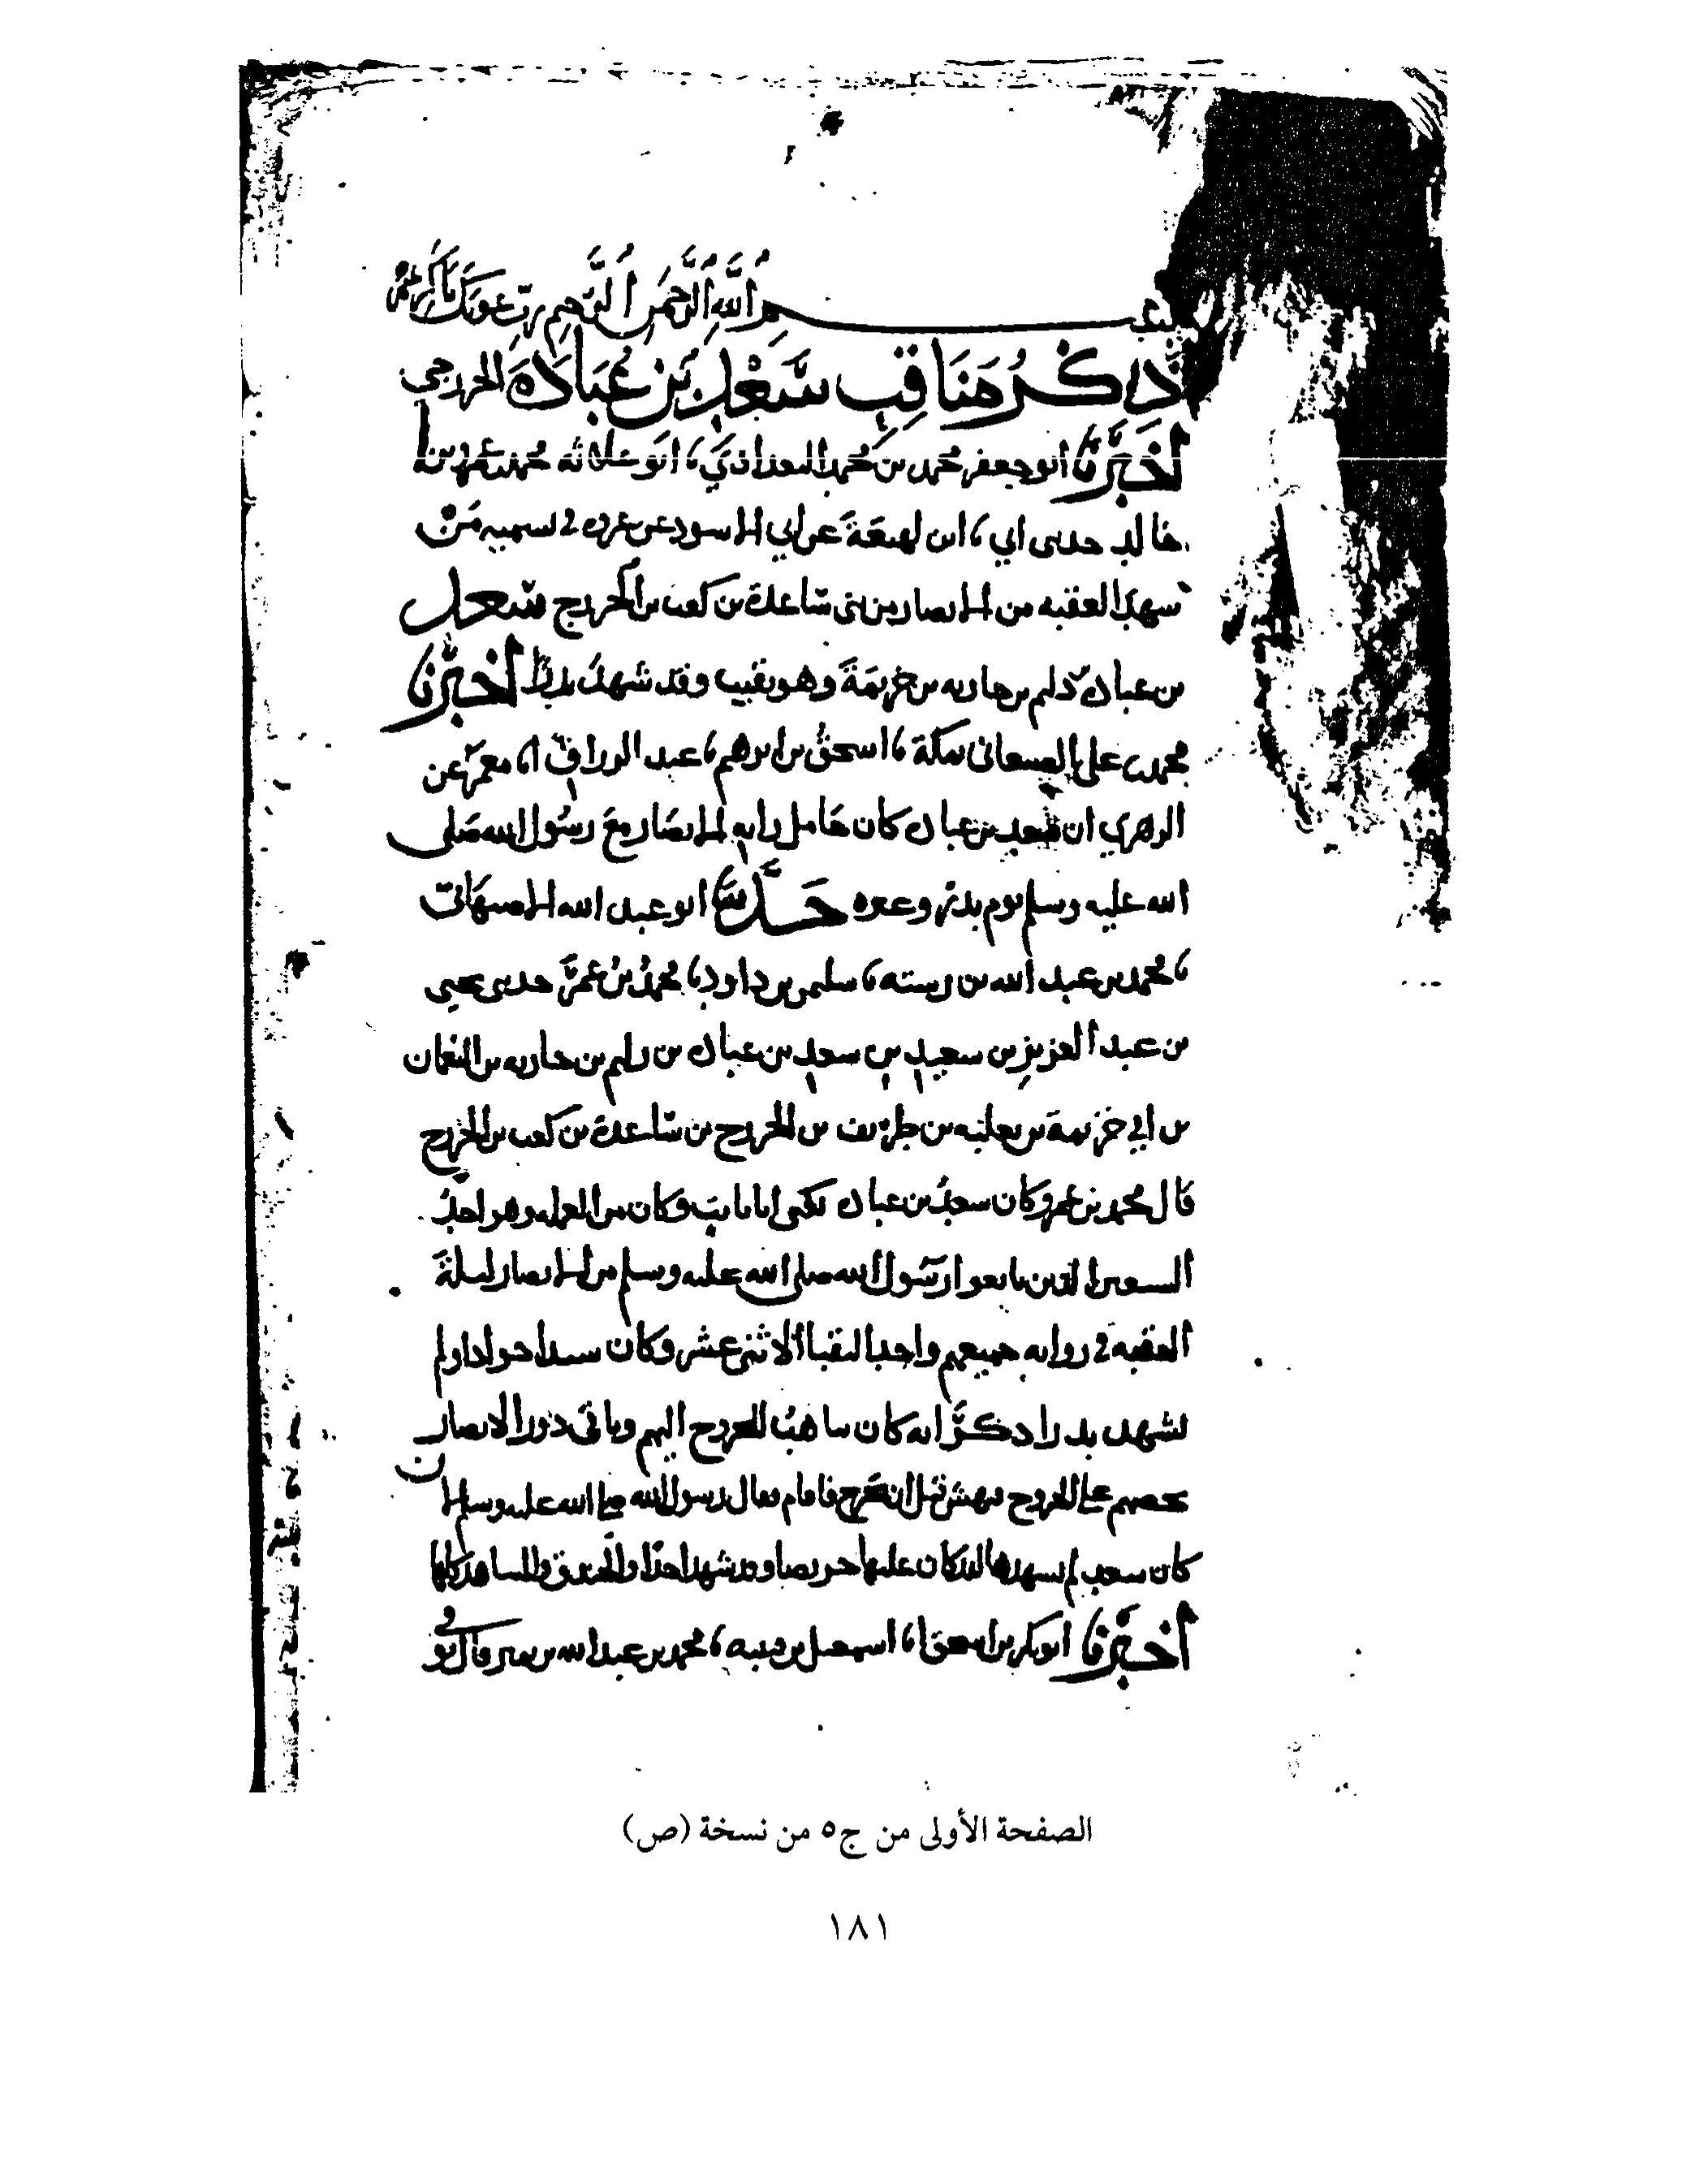 بسم الله الرحمن الرحيم رب عونك يا كريم
ذكر مناقب سعد بن عبادة الخزرجي
أخبرنا ابو جعفر محمد بن محمد البغدادي ثنا ابو علاثة محمد بن عمرو بن
خالد حدثني ابي ثنا ابن لهيعة عن ابي الاسود عن عروة في تسمية من
شهد العقبة من الانصار من بني ساعدة بن كعب بن الخزرج سعد
بن عبادة بن دليم بن حارثة بن خزيمة وهو نقيب وقد شهد بدرا أخبرنا
محمد بن علي الصنعاني بمكة ثنا اسحق بن ابرهيم ثنا عبد الرزاق انا معمر عن
الزهري ان سعد بن عبادة كان حامل راية الانصار مع رسول الله صلى
الله عليه وسلم يوم بدر وغيره حدثنا ابو عبد الله الاصبهاني
ثنا محمد بن عبد الله بن رسته ثنا سليمن بن داود ثنا محمد بن عمر حدثني يحيى
بن عبد العزيز بن سعيد بن سعد بن عبادة بن دليم بن حارثة بن النعمان
بن ابي خزيمة بن ثعلبة بن طريف بن الخزرج بن ساعدة بن كعب بن الخزرج
قال محمد بن عمر وكان سعد بن عبادة يكنى ابا ثابت وكان من وهو احد
السبعين الذين بايعوا رسول الله صلى الله عليه وسلم من الانصار ليلة
العقبة في رواية جميعهم واحد النقبا الاثني عشر وكان سيدا جوادا ولم
يشهد بدرا ذكر انه كان يتاهب للخروج اليهم وياتي دور الانصار
يحضهم على الخروج فنهش قبل ان يخرج فاقام فقال رسول الله صلى الله عليه وسلم لئن
كان سعد لم يشهدها لقد كان عليها حريصا وقد شهد احدا والخندق والمشاهد كلها
أخبرنا ابو بكر بن اسحق انا اسمعيل بن قتيبة ثنا محمد بن عبد الله بن نمير قال توفي
الصفحة الأولى من ج٥ من نسخة (ص)
١٨١